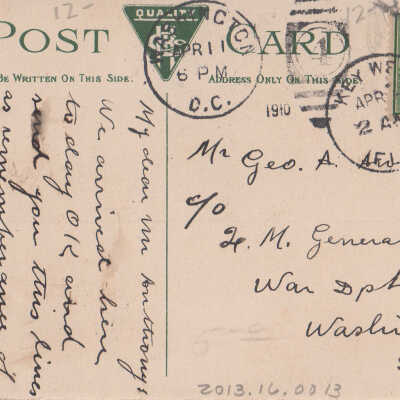 12-
12-
POST CARD
QUALITY
BE WRITTEN ON THIS SIDE.
ADDRESS ONLY ON THIS SIDE.
WASHINGTON
APR 11
6 PM
D.C.
1910
KEY WE
APR
2 A
FL
My dear Mr Anthony:
We arrived here
to day OK and
send you this lines
as rememberance of
Mr Geo. A.
c/o
Q. M. General
War Dpt
Washi
2013.16.0013